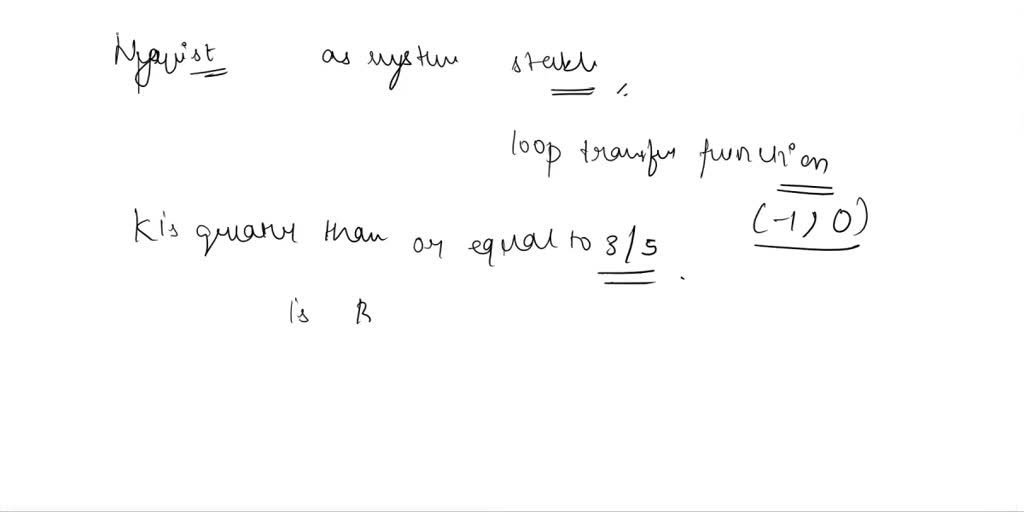 Nyquist as system stable
loop transfer function
K is greater than or equal to 3/5 (-1, 0)
is B